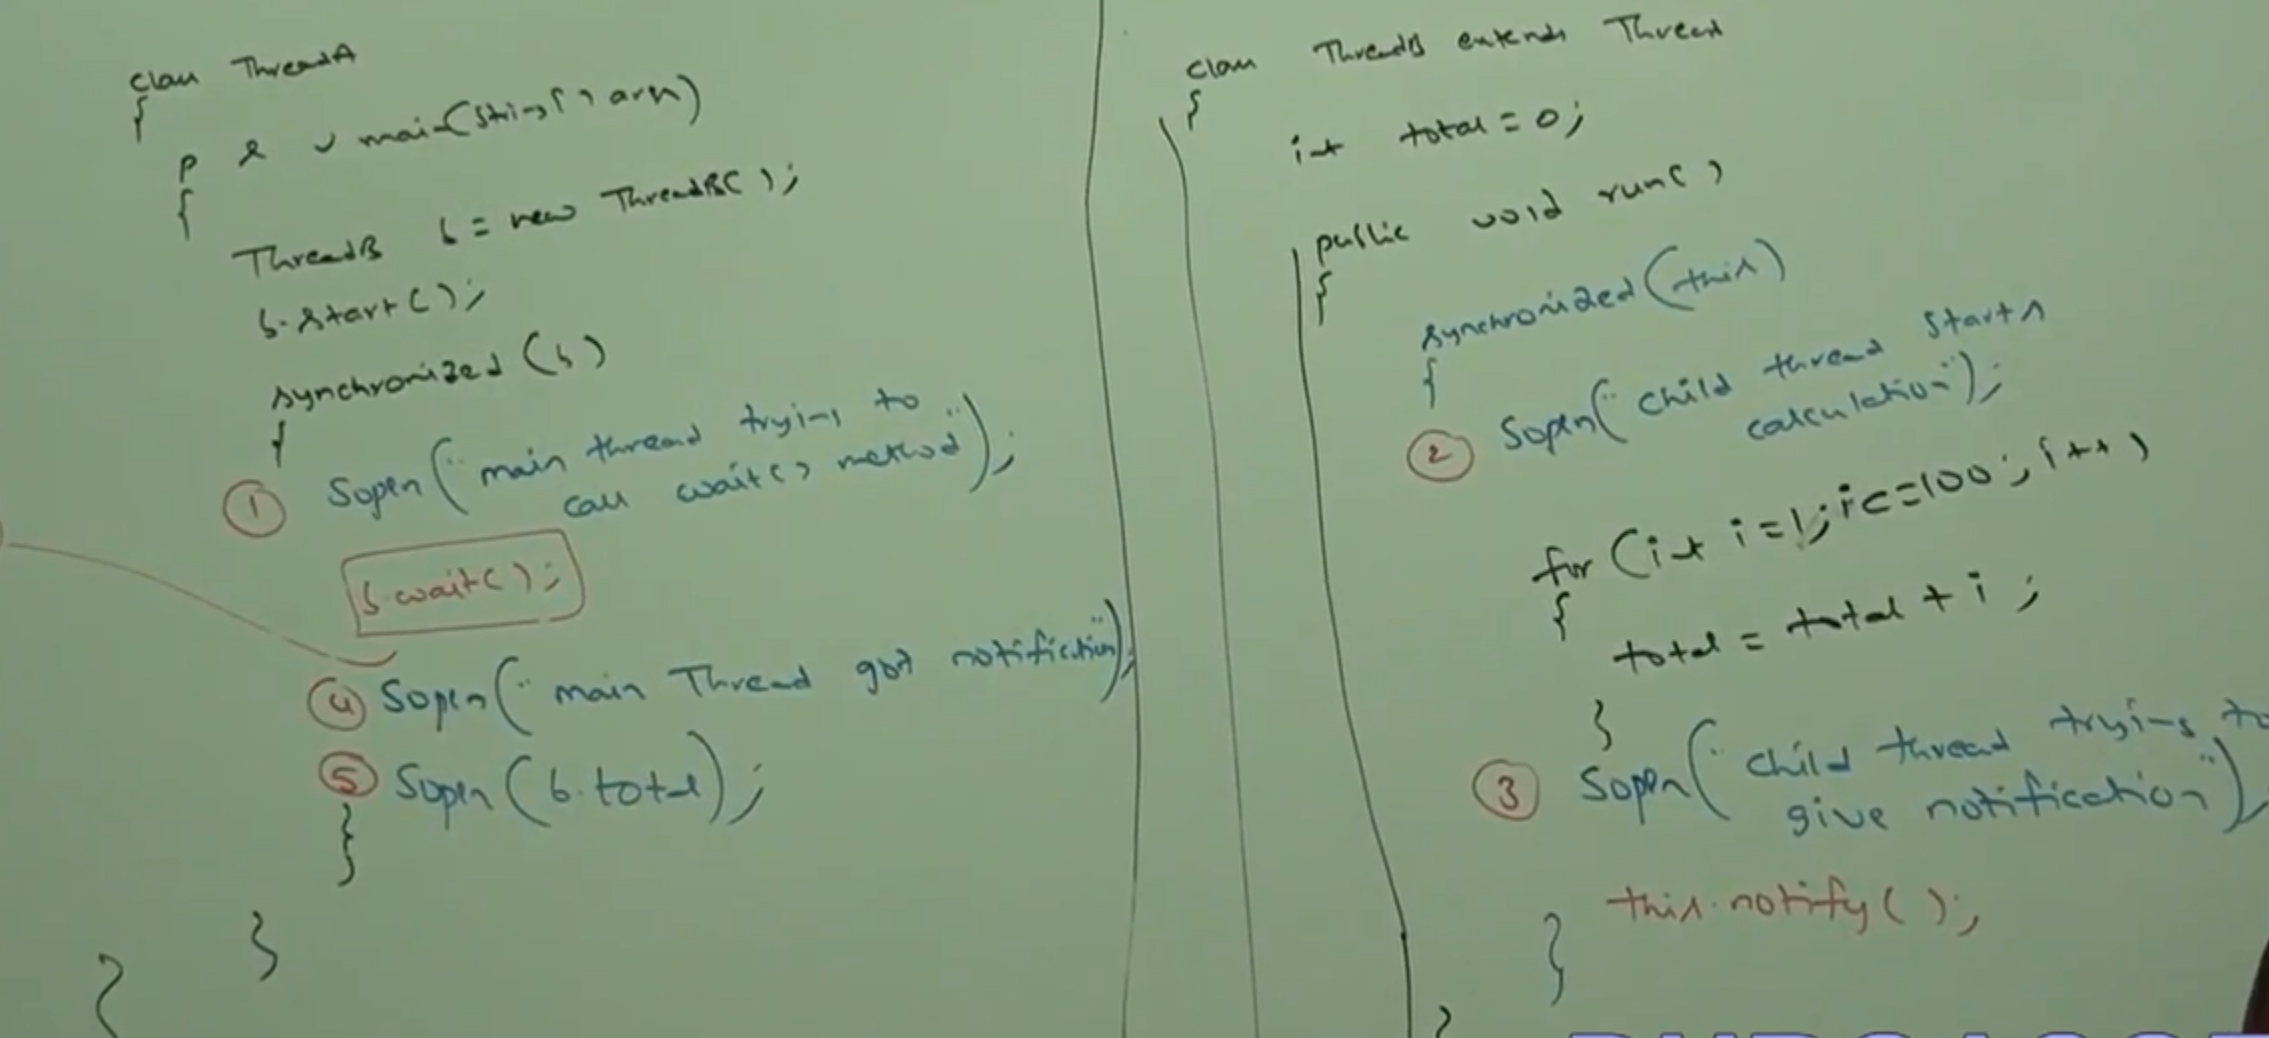 class ThreadA
{
p s v main(String[] args)
{
ThreadB b = new ThreadB();
b.start();
synchronized (b)
{
① Sopln("main thread trying to
call wait() method");
b.wait();
④ Sopln("main Thread got notification");
⑤ Sopln(b.total);
}
}
}
class ThreadB extends Thread
{
int total = 0;
public void run()
{
synchronized (this)
{
② Sopln("child thread starts
calculation");
for (int i=1; i<=100; i++)
{
total = total + i;
}
③ Sopln("child thread trying to
give notification");
this.notify();
}
}